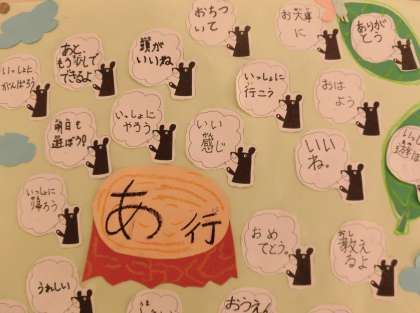 おちつ
いて
お大事
に
ありが
とう
あと
もう少しで
できるよ
頭が
いいね
いっしょに
がんばろう
いっしょに
行こう
おは
よう
明日も
遊ぼう!
いっしょに
やろう
いい
感じ
かん
いい
ね。
いっしょに
帰ろう
あ行
おめ
でとう。
教え
おし
るよ
うれしい
おうえん